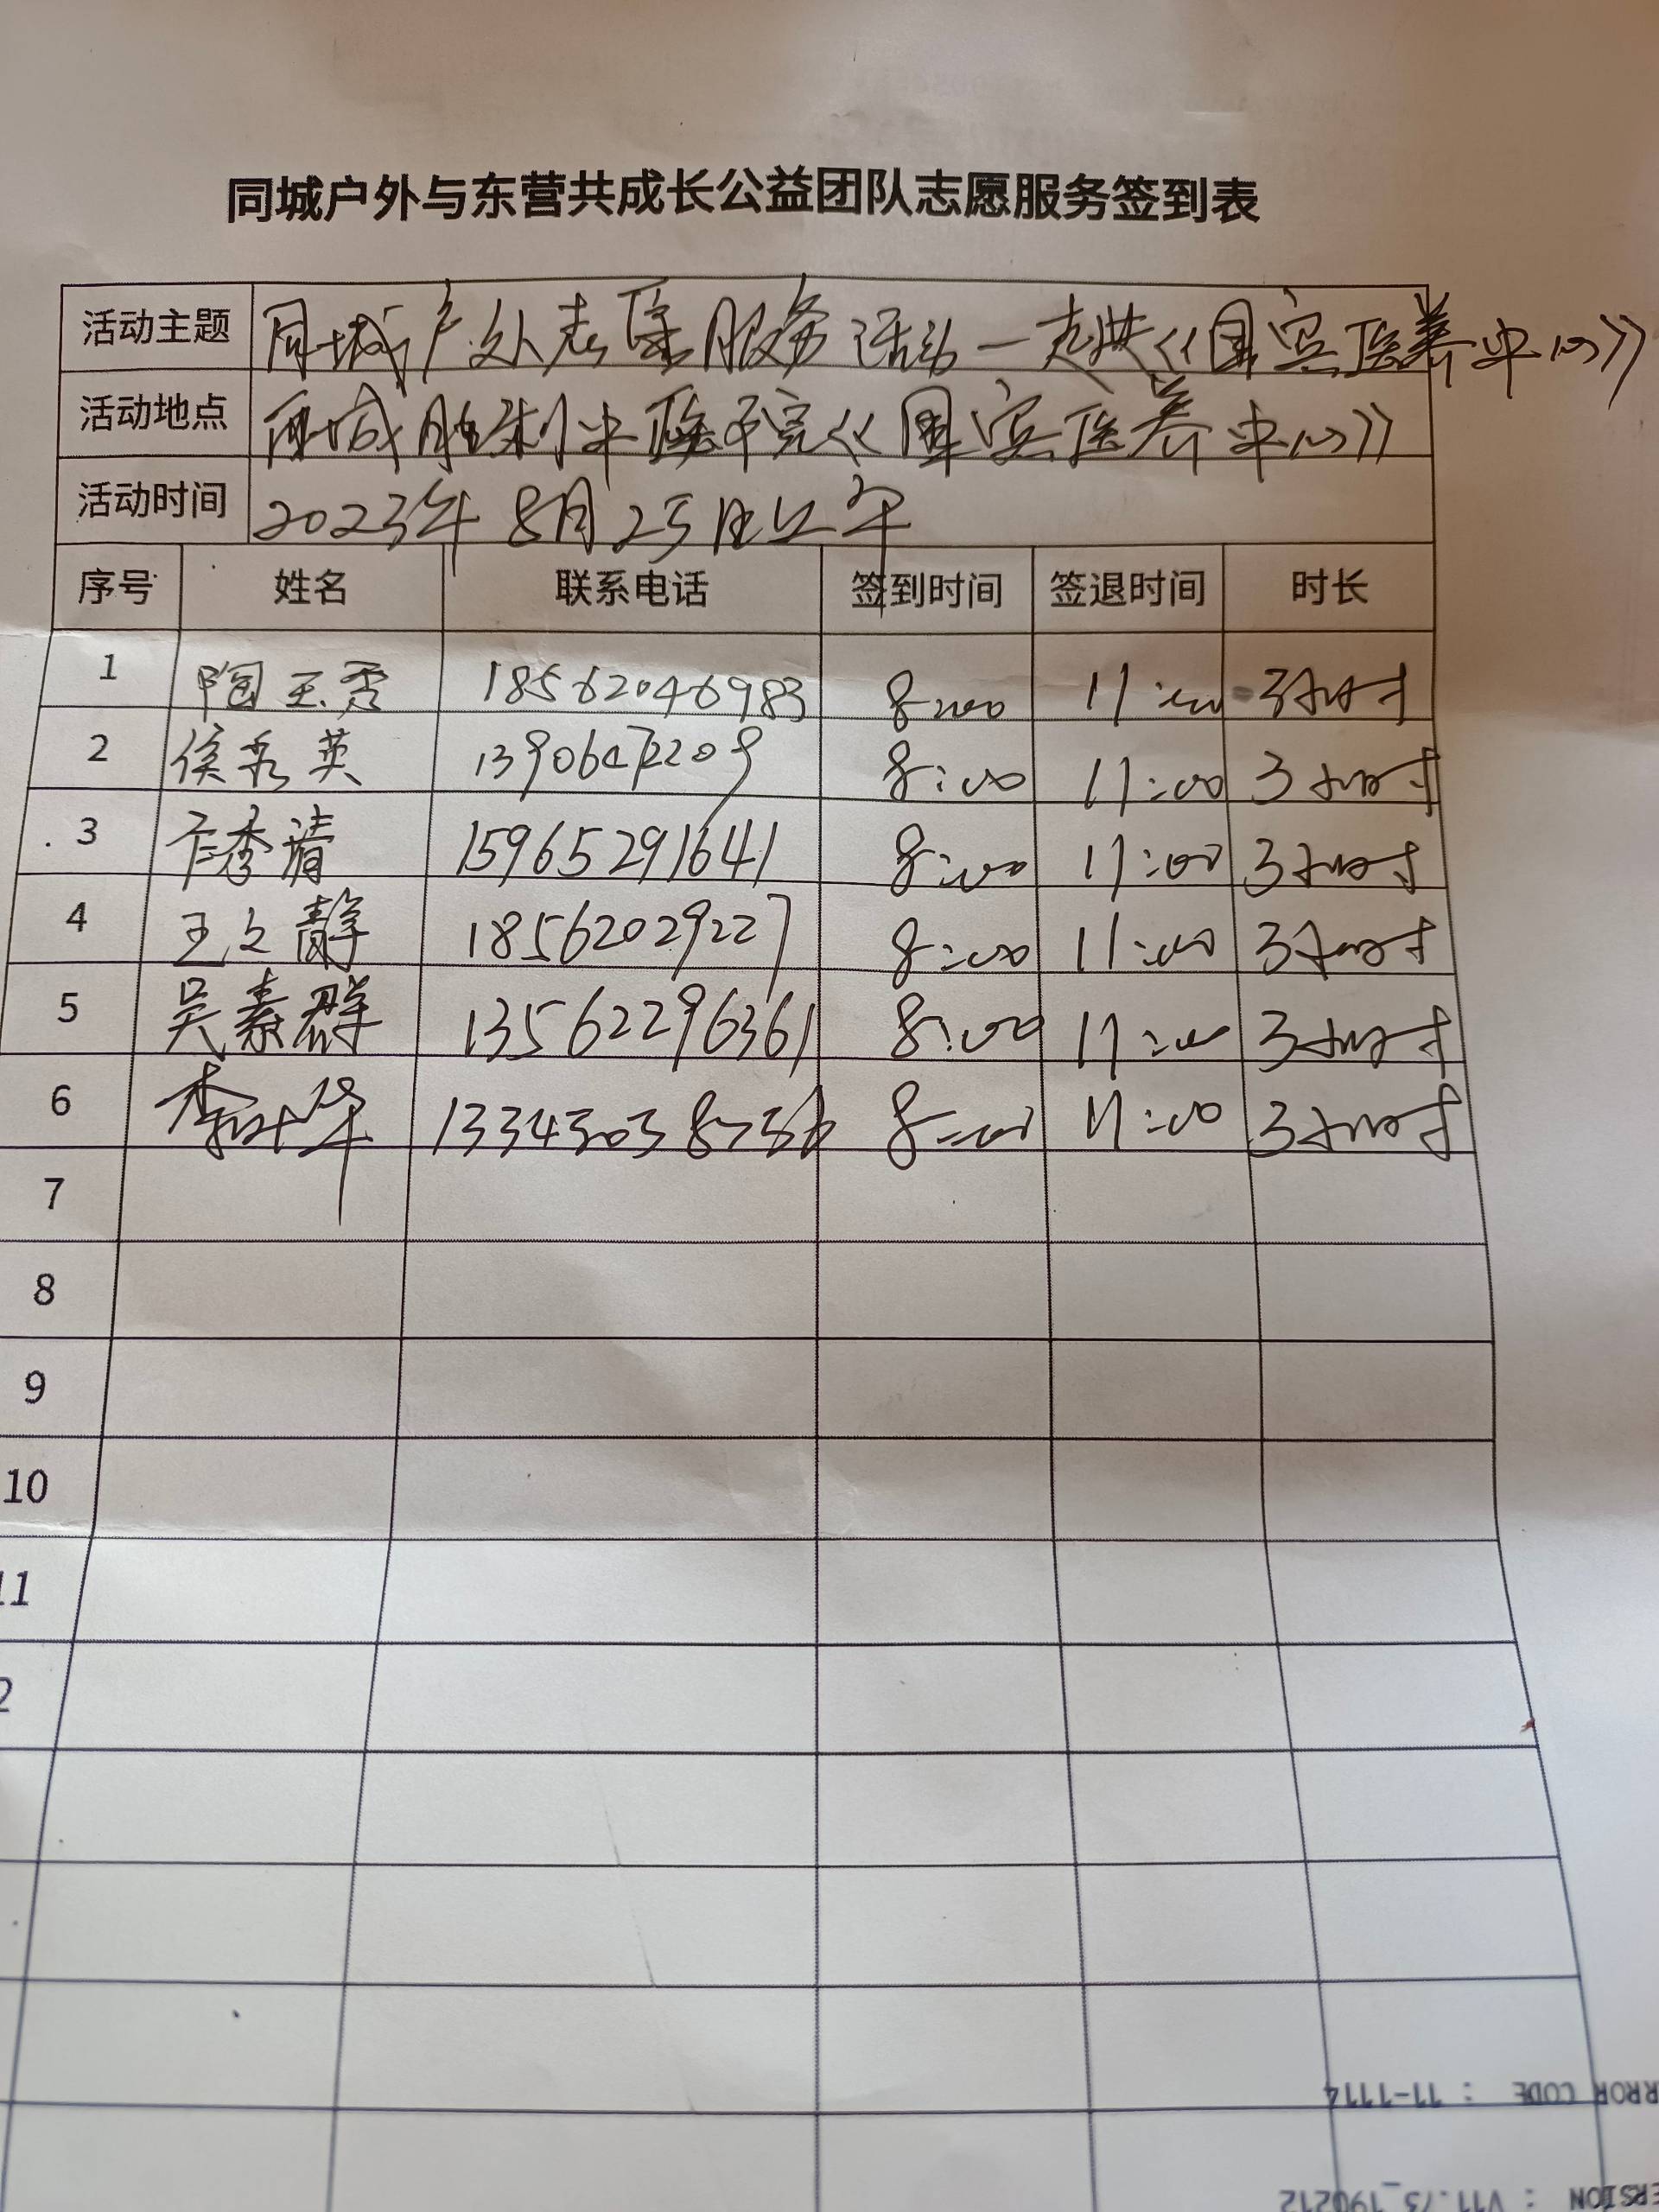 同城户外与东营共成长公益团队志愿服务签到表
活动主题 同城户外志愿服务活动一走进《国宾医养中心》
活动地点 西城胜利中医院《国宾医养中心》
活动时间 2023年8月25日上午
序号 姓名 联系电话 签到时间 签退时间 时长
1 陶玉秀 18562046983 8:00 11:00 3小时
2 侯秀英 13906472209 8:00 11:00 3小时
3 秀清 15965291641 8:00 11:00 3小时
4 王文静 18562029227 8:00 11:00 3小时
5 吴素群 13562296361 8:00 11:00 3小时
6 李叶华 8:00 11:00 3小时
7
8
9
10
11
2
RROR CODE : 11-1114
ERSION : V11.73_190212